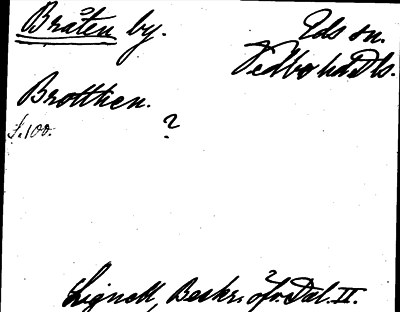 Bråten by. Eds sn.
Vedbo hd Dls.
Brotthen.
s. 100. ?
Lignell, Beskr. öfv. Dal. II.